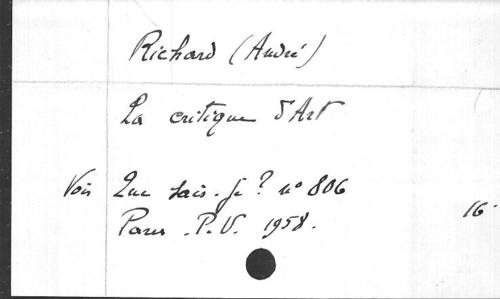 Richard (André)
La critique d'Art
Voir Que sais-je? n° 806
Paris. P.U. 1958.
16°